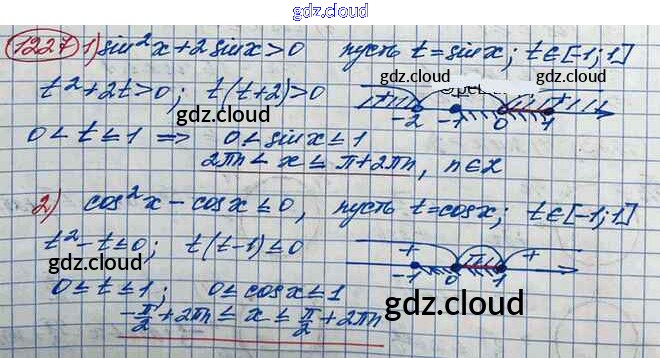 gdz.cloud
1227 1) sin²x + 2 sinx > 0 пусть t = sinx; t ∈ [-1; 1]
gdz.cloud
t² + 2t > 0; t(t+2) > 0
gdz.cloud
-2 -1 0 1
0 < t ≤ 1 ⇒ 0 < sinx ≤ 1
2πn < x ≤ π + 2πn, n ∈ Z
gdz.cloud
2) cos²x - cosx ≤ 0, пусть t = cosx; t ∈ [-1; 1]
gdz.cloud
t² - t ≤ 0; t(t-1) ≤ 0
+ +
gdz.cloud
-1 0 1
0 ≤ t ≤ 1; 0 ≤ cosx ≤ 1
gdz.cloud
-π/2 + 2πn ≤ x ≤ π/2 + 2πn